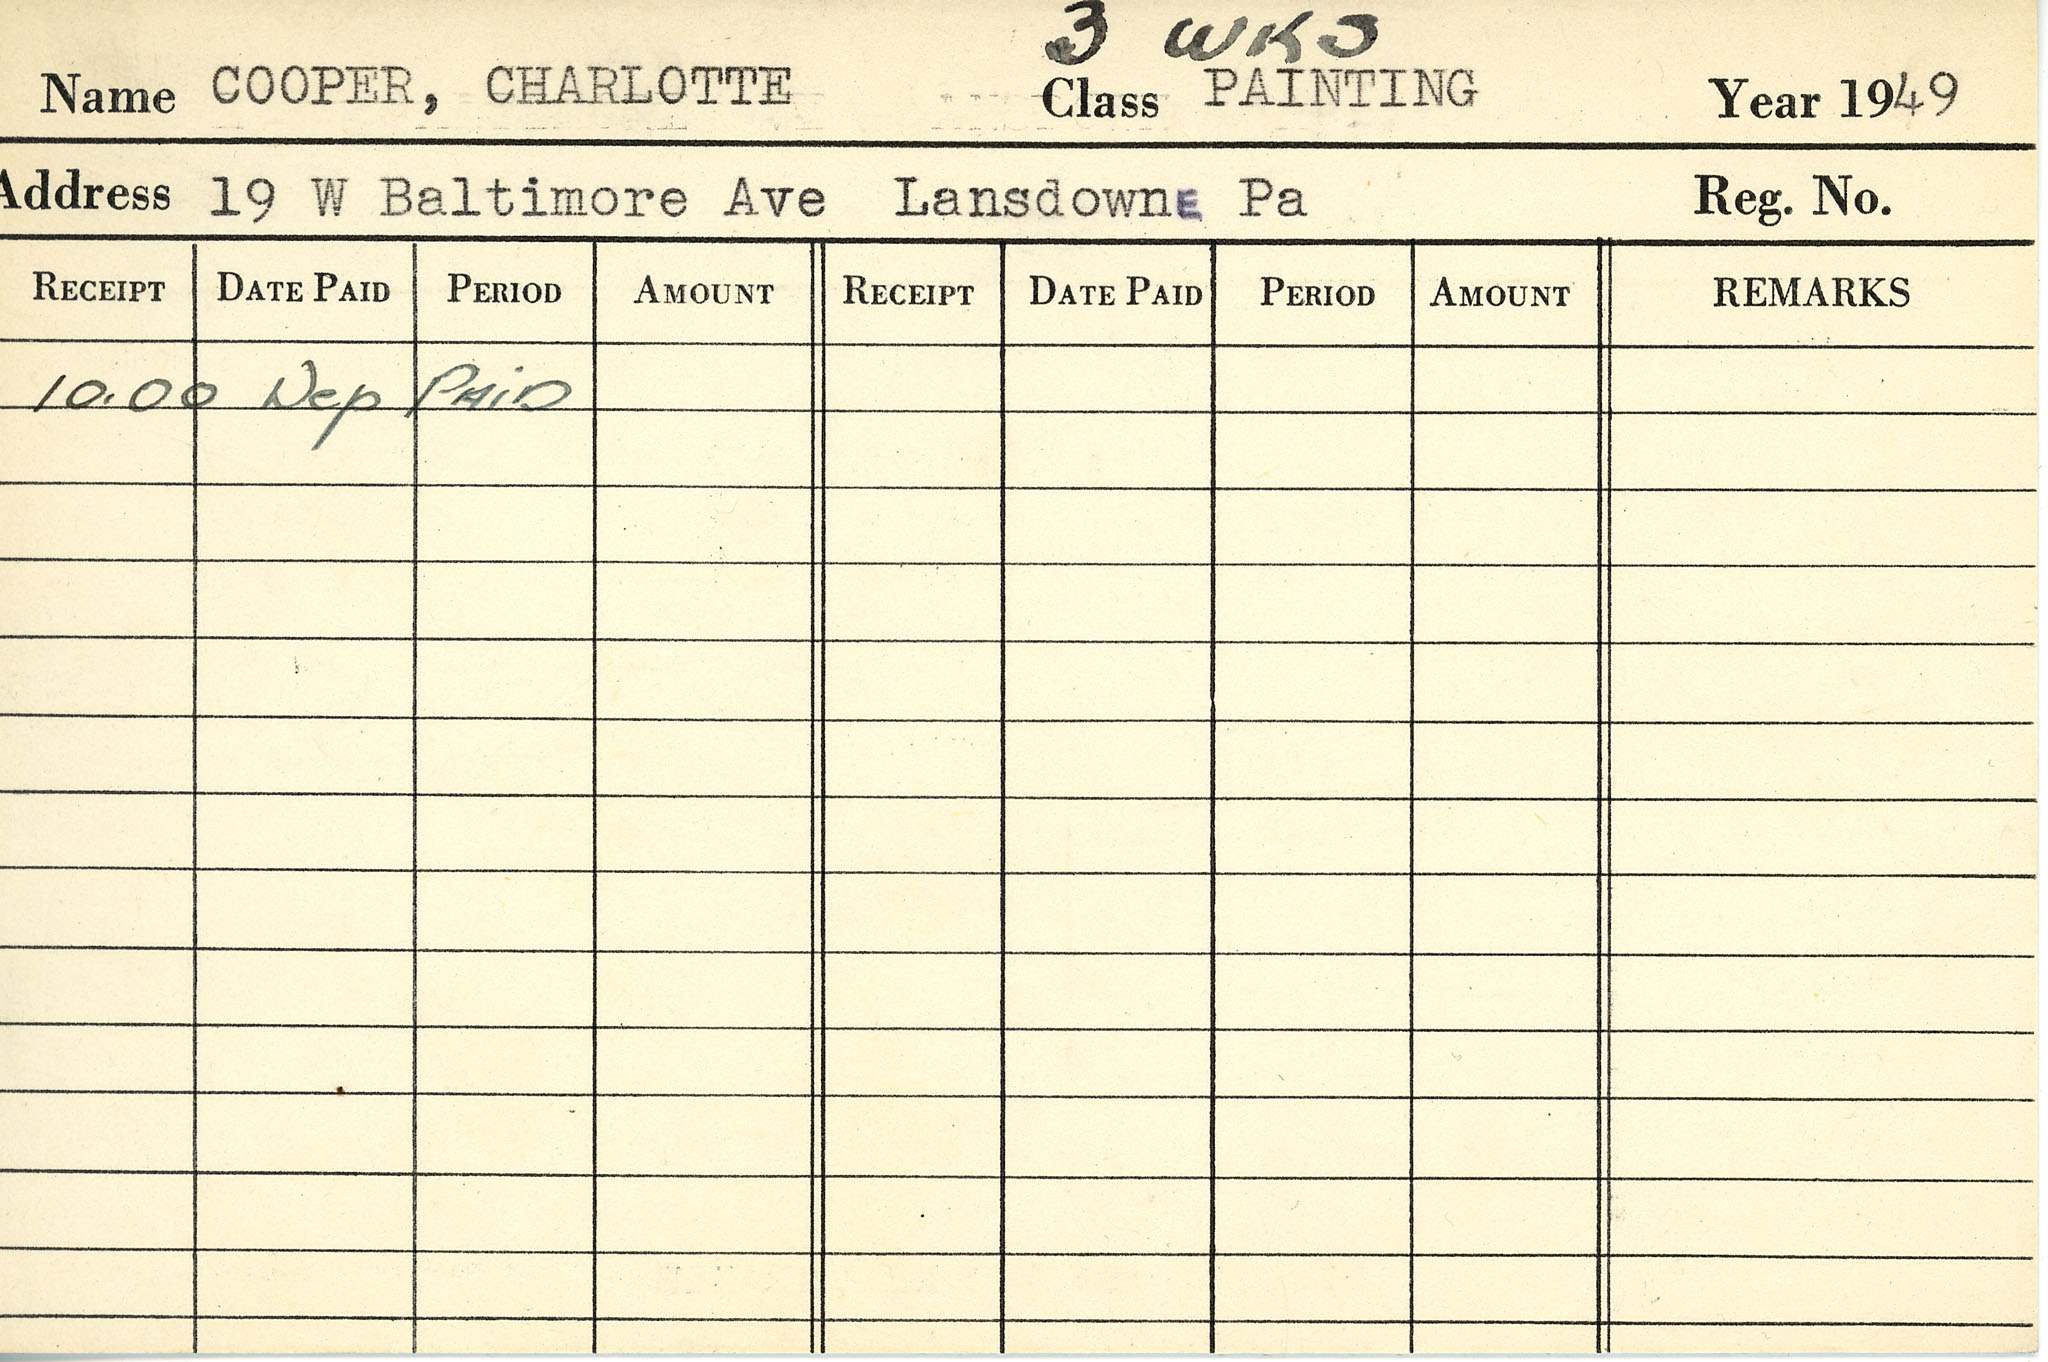 3 WKS
Name COOPER, CHARLOTTE Class PAINTING Year 1949
Address 19 W Baltimore Ave Lansdowne Pa Reg. No.
RECEIPT DATE PAID PERIOD AMOUNT RECEIPT DATE PAID PERIOD AMOUNT REMARKS
10.00 Dep PAID